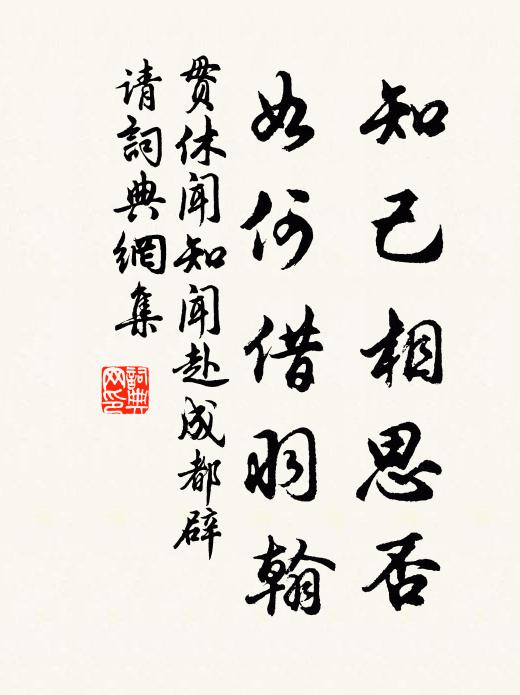 知己相思否
如何借羽翰
贯休闻知闻赴成都辟
请詞典網集
詞典
网印